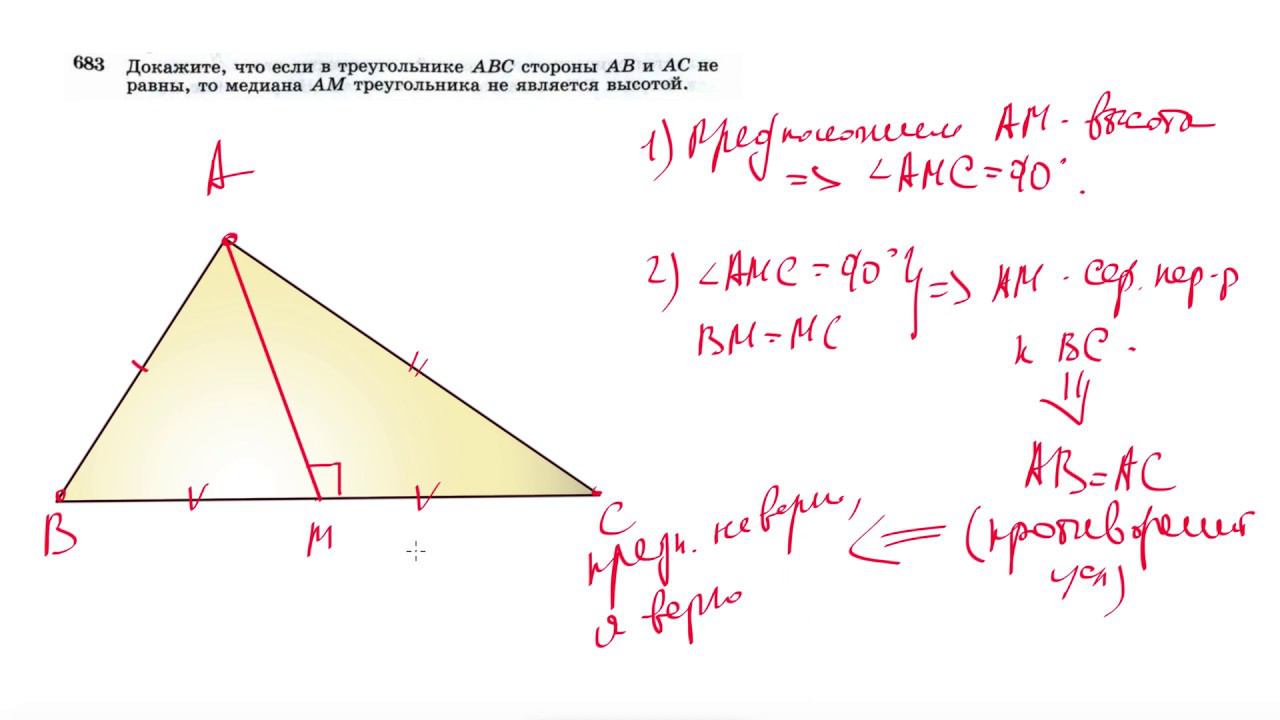 683 Докажите, что если в треугольнике ABC стороны AB и AC не
равны, то медиана AM треугольника не является высотой.
A
B
M
C
1) Предположим AM - высота
=> ∠AMC = 90°.
2) ∠AMC = 90°
BM = MC
} => AM - сер. пер-р
к BC.
⇓
AB = AC
(противоречит
усл)
<=
предп. неверн,
а верно